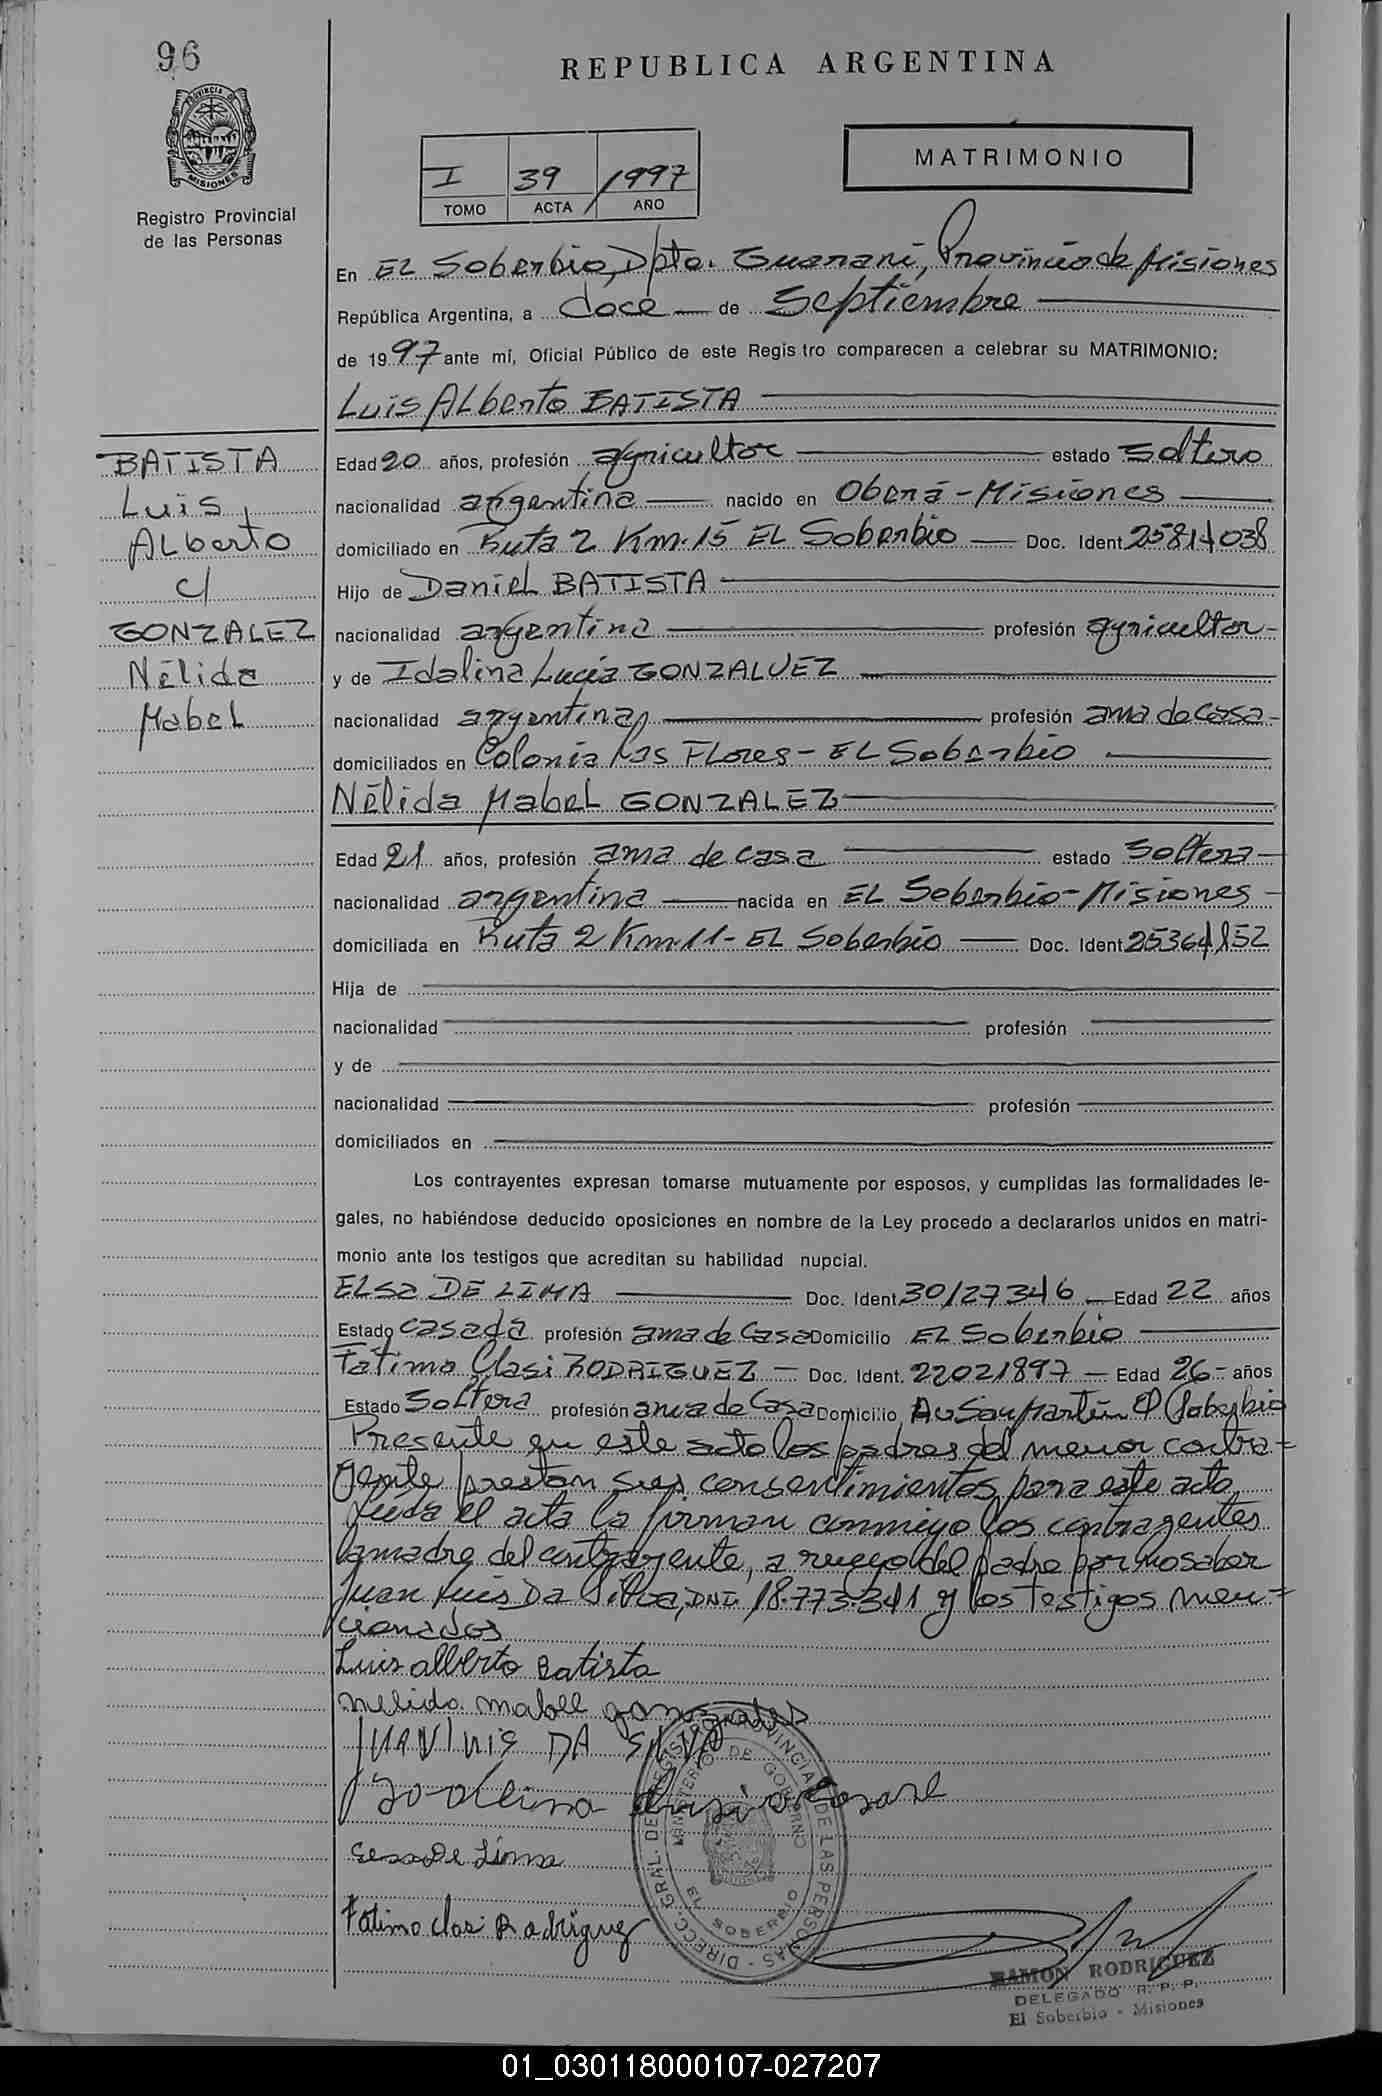 96
REPUBLICA ARGENTINA
PROVINCIA DE
MISIONES
Registro Provincial
de las Personas
I 39 1997
TOMO ACTA AÑO
MATRIMONIO
En EL Soberbio, Dpto. Guarani, Provincia de Misiones
República Argentina, a doce de Septiembre
de 1997 ante mí, Oficial Público de este Registro comparecen a celebrar su MATRIMONIO:
Luis ALberto BATISTA
BATISTA
Luis
ALberto
c/
GONZALEZ
Nélida
MabeL
Edad 20 años, profesión agricultor estado Soltero
nacionalidad argentina nacido en Oberá - Misiones
domiciliado en Ruta 2 Km. 15 EL Soberbio Doc. Ident 25814038
Hijo de DanieL BATISTA
nacionalidad argentina profesión agricultor
y de Idalina Lucía GONZALVEZ
nacionalidad argentina profesión ama de casa
domiciliados en Colonia Las FLores - EL Soberbio
Nélida MabeL GONZALEZ
Edad 21 años, profesión ama de casa estado Soltera
nacionalidad argentina nacida en EL Soberbio - Misiones
domiciliada en Ruta 2 Km. 11 - EL Soberbio Doc. Ident 25364852
Hija de
nacionalidad profesión
y de
nacionalidad profesión
domiciliados en
Los contrayentes expresan tomarse mutuamente por esposos, y cumplidas las formalidades le-
gales, no habiéndose deducido oposiciones en nombre de la Ley procedo a declararlos unidos en matri-
monio ante los testigos que acreditan su habilidad nupcial.
ELsa DE LIMA Doc. Ident 30127346 Edad 22 años
Estado casada profesión ama de casa Domicilio EL Soberbio
Fátima Clasi RODRIGUEZ Doc. Ident. 22021897 Edad 26 años
Estado Soltera profesión ama de casa Domicilio Av San Martín El Soberbio
Presente en este acto los padres del menor contra=
yente prestan sus consentimientos para este acto
Leída el acta la firman conmigo los contrayentes
la madre del contrayente, a ruego del padre por no saber
Juan Luis Da Silva, DNI. 18.773.341 y los testigos men=
cionados
Luis alberto Batista
nelida mabel gonzales
JUAN LUIS DA SILVA
Elsa De Lima
Fatima clasi Rodriguez
DIRECC. GRAL. DEL REGISTRO PROVINCIAL DE LAS PERSONAS
MINISTERIO DE GOBIERNO
EL SOBERBIO
RAMON RODRIGUEZ
DELEGADO R. P. P.
El Soberbio - Misiones
01_030118000107-027207